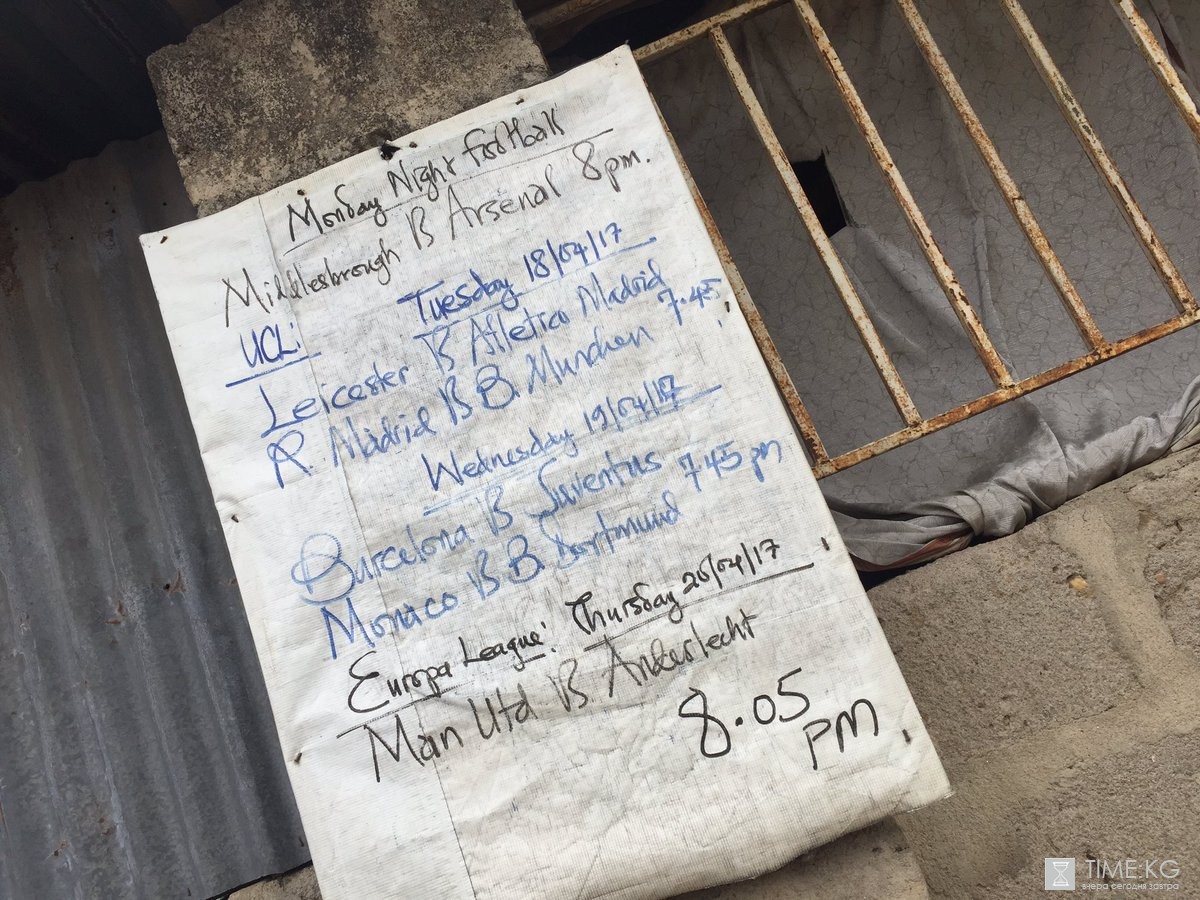 Monday Night Football
Middlesbrough B Arsenal 8pm.
Tuesday 18/04/17
UCL:
Leicester B Atletico Madrid
R. Madrid B B. Munchen 7.45
Wednesday 19/04/17
Barcelona B Juventus
Monaco B B. Dortmund 745 pm
Europa League: Thursday 20/04/17
Man Utd B Anderlecht
8.05
pm
TIME.KG
вчера сегодня завтра